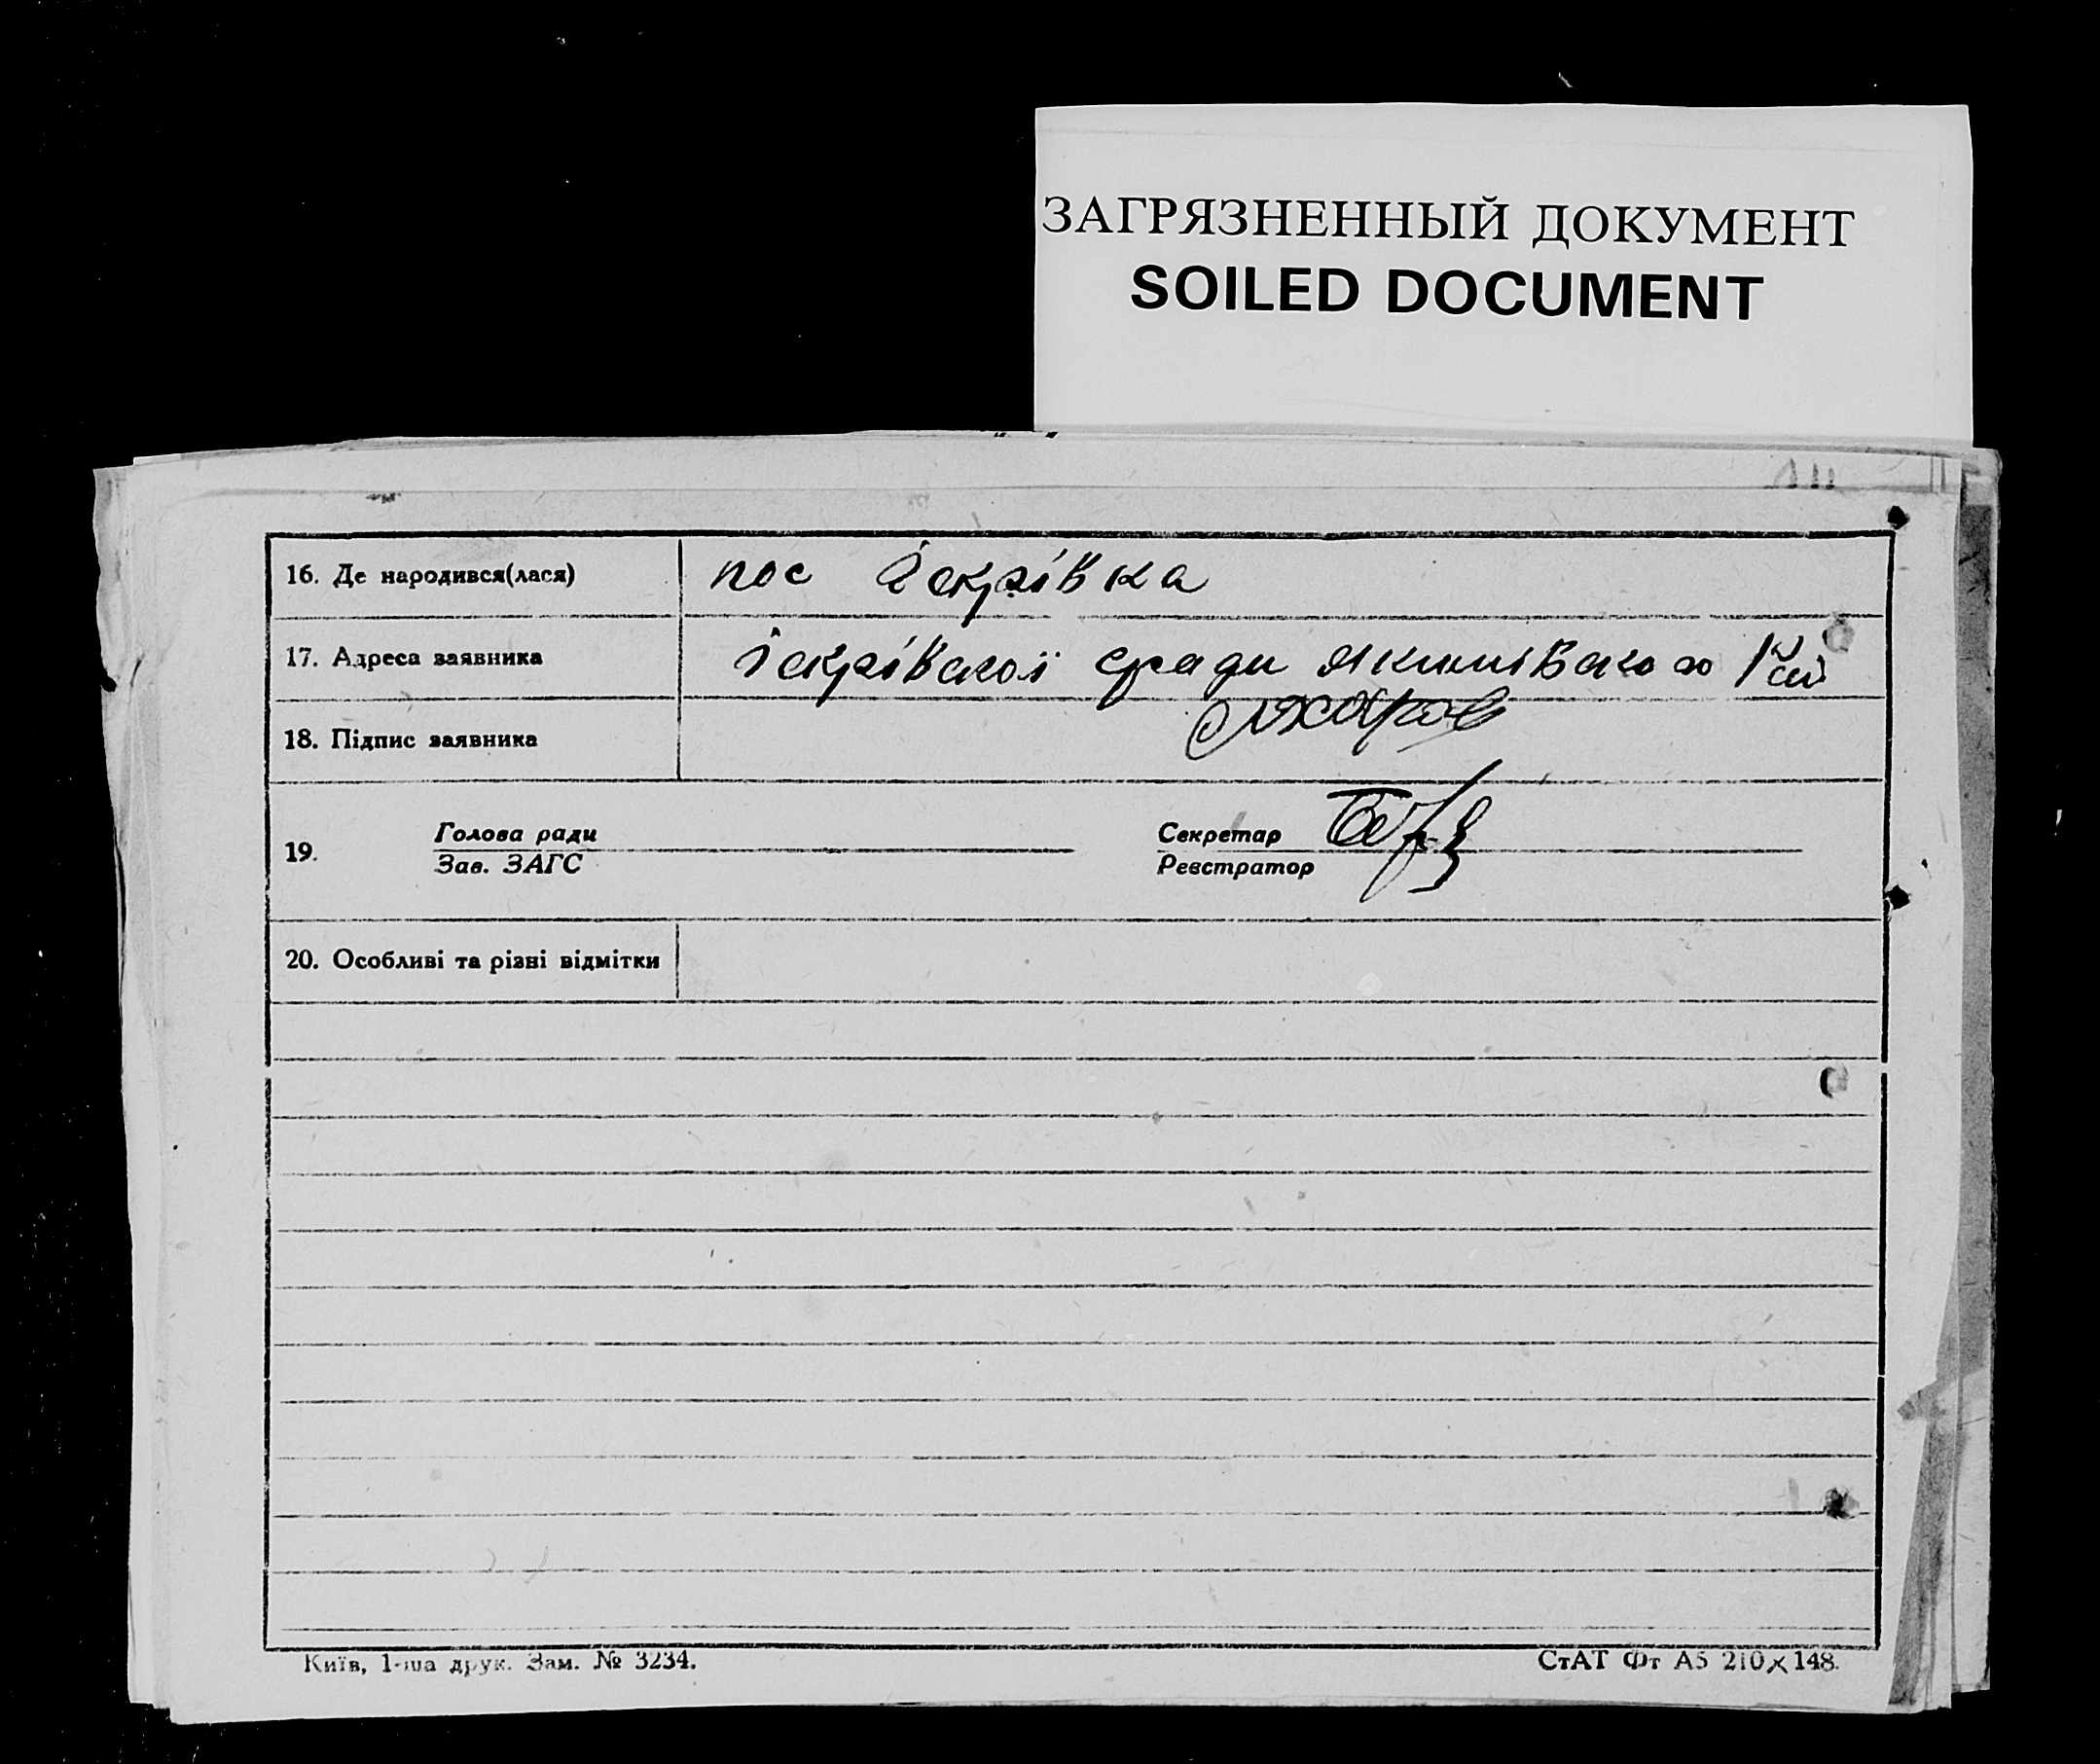 ЗАГРЯЗНЕННЫЙ ДОКУМЕНТ
SOILED DOCUMENT
16. Де народився(лася) пос Іскрівка
17. Адреса заявника Іскрівской сради Якимівського Рай
18. Підпис заявника
19. Голова ради Секретар
Зав. ЗАГС Реєстратор
20. Особливі та різні відмітки
Київ, 1-ша друк. Зам. № 3234. СтАТ Фт А5 210×148.